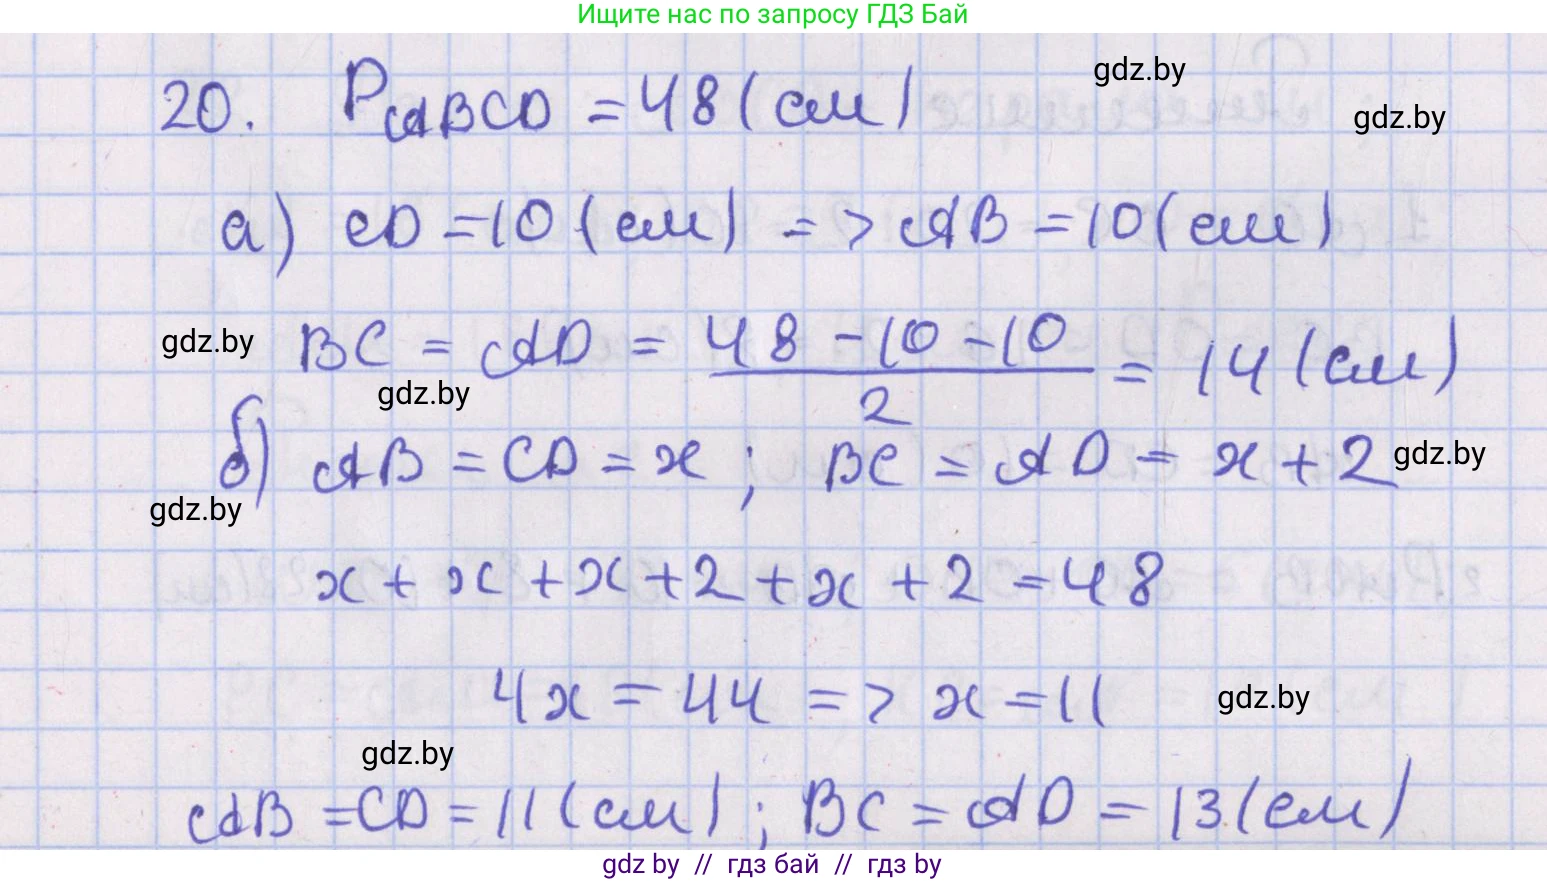 Ищите нас по запросу ГДЗ Бай
20. PABCD = 48 (см)
gdz.by
gdz.by
а) CD = 10 (см) => AB = 10 (см)
gdz.by
BC = AD = (48 - 10 - 10)/2 = 14 (см)
gdz.by
б) AB = CD = x; BC = AD = x + 2
gdz.by
gdz.by
x + x + x + 2 + x + 2 = 48
4x = 44 => x = 11
gdz.by
gdz.by
AB = CD = 11 (см); BC = AD = 13 (см)
gdz.by // гдз бай // гдз by